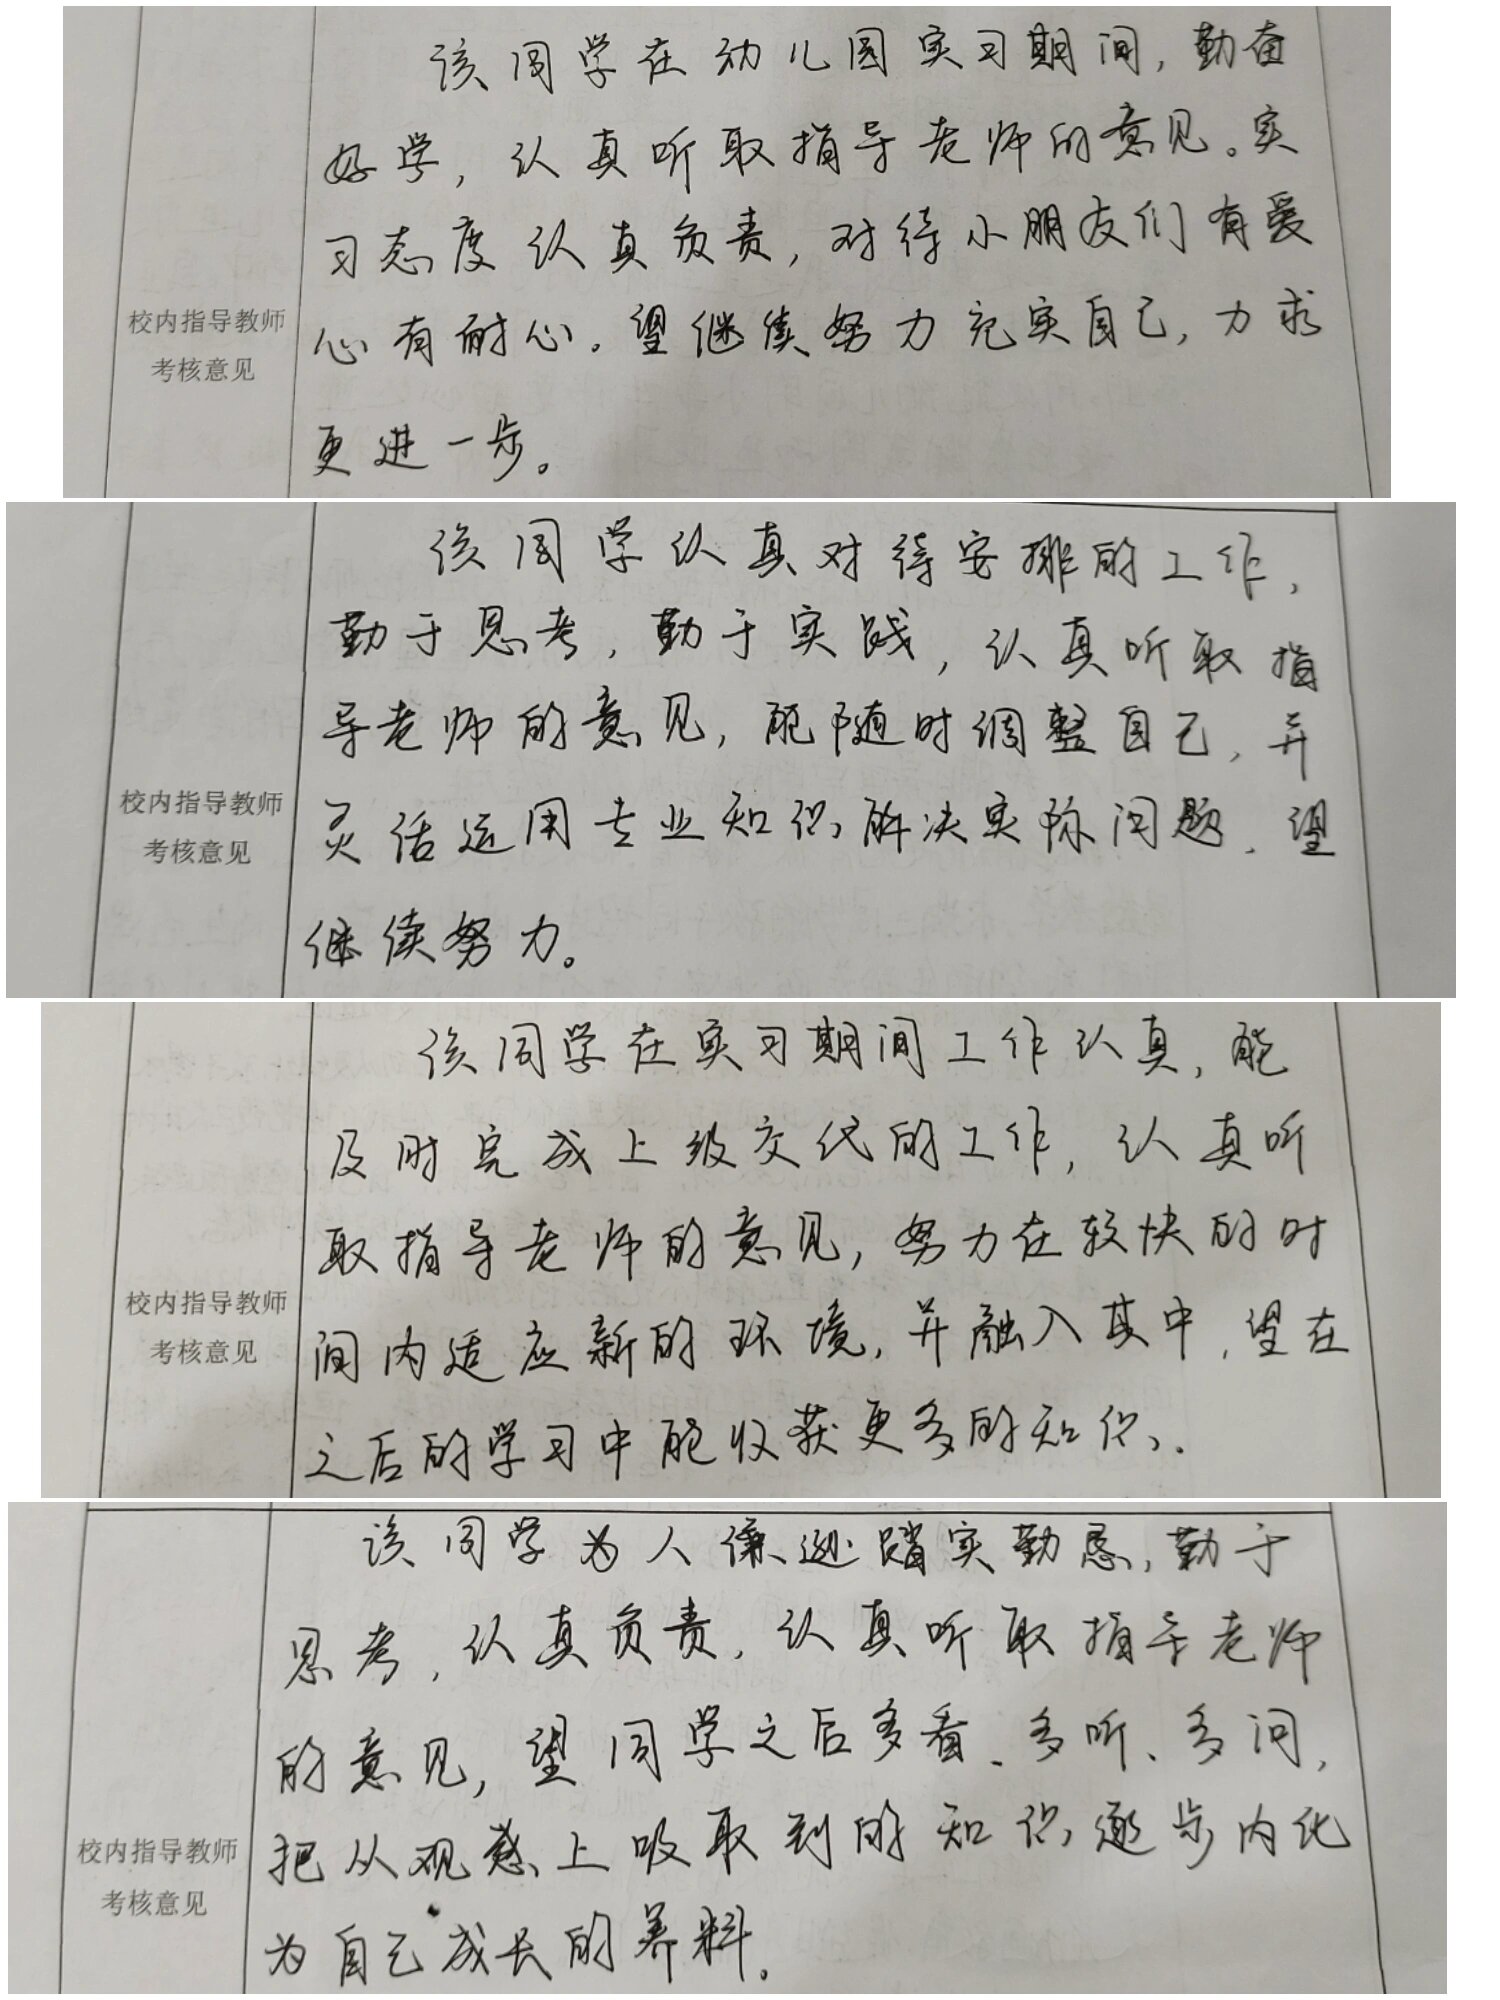 该同学在幼儿园实习期间，勤奋
好学，认真听取指导老师的意见。实
习态度认真负责，对待小朋友们有爱
心有耐心。望继续努力充实自己，力求
更进一步。
校内指导教师
考核意见
该同学认真对待安排的工作，
勤于思考，勤于实践，认真听取指
导老师的意见，能随时调整自己，并
灵活运用专业知识解决实际问题，望
继续努力。
校内指导教师
考核意见
该同学在实习期间工作认真，能
及时完成上级交代的工作，认真听
取指导老师的意见，努力在较快的时
间内适应新的环境，并融入其中，望在
之后的学习中能收获更多的知识。
校内指导教师
考核意见
该同学为人谦逊踏实勤恳，勤于
思考，认真负责，认真听取指导老师
的意见，望同学之后多看、多听、多问，
把从观感上吸取到的知识逐步内化
为自己成长的养料。
校内指导教师
考核意见